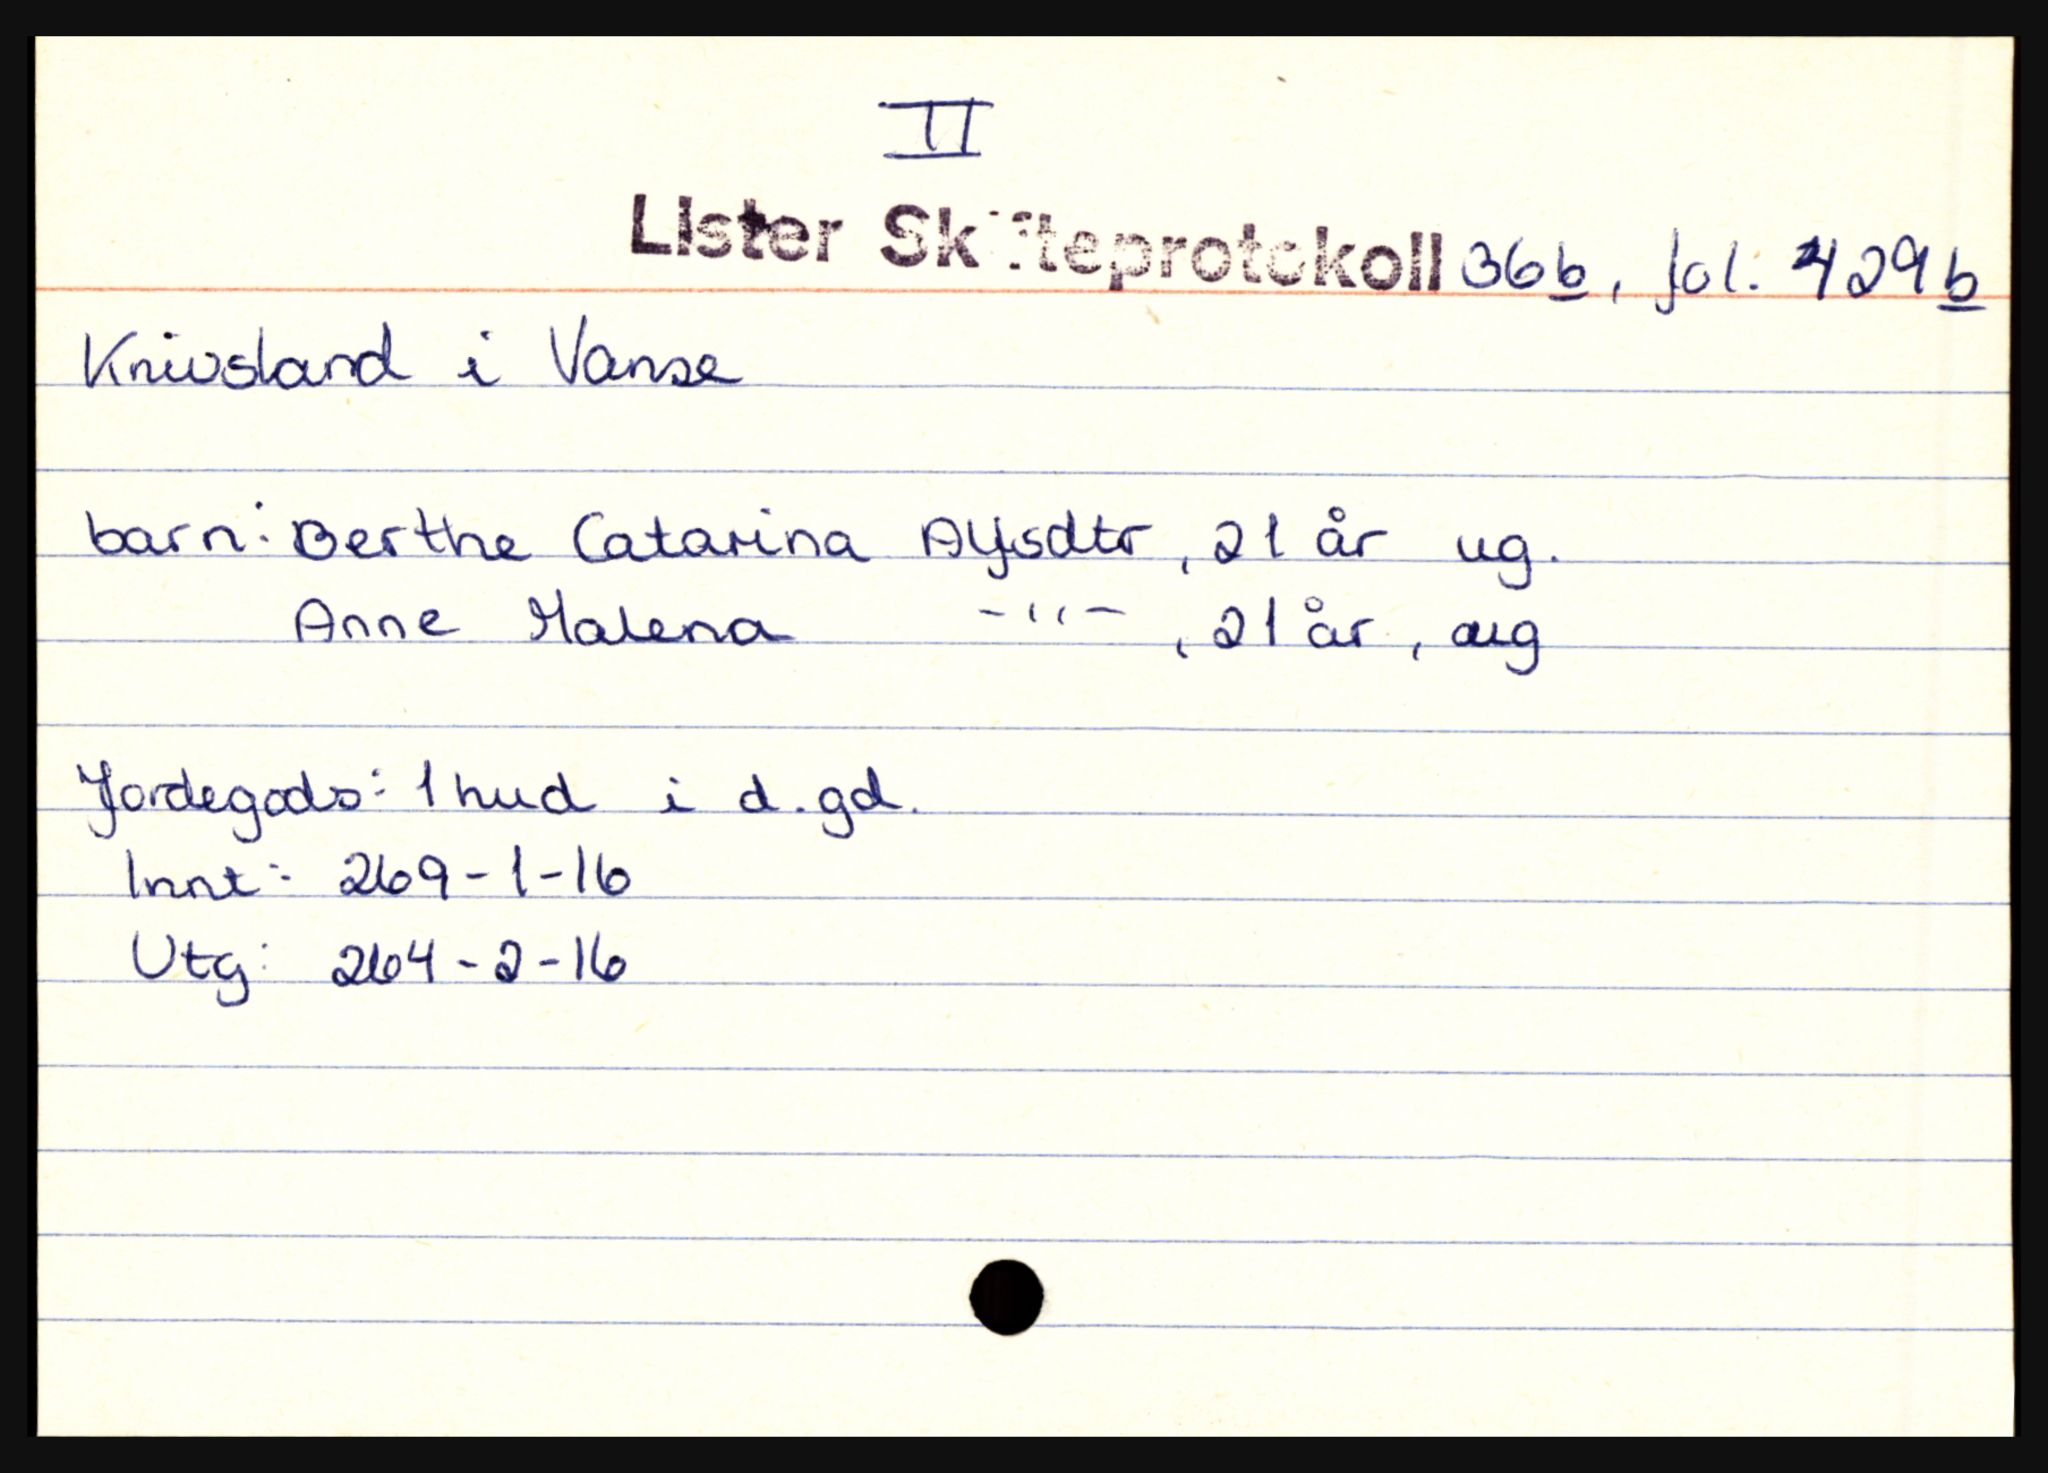 II
Lister Skifteprotokoll 36b, fol. 429b
Knivsland i Vanse
barn: Berthe Catarina Alfsdtr, 21 år ug.
Anne Malena -"-, 21 år, ug
Jordegods: 1 hud i d.gd.
Innt: 269-1-16
Utg: 264-2-16